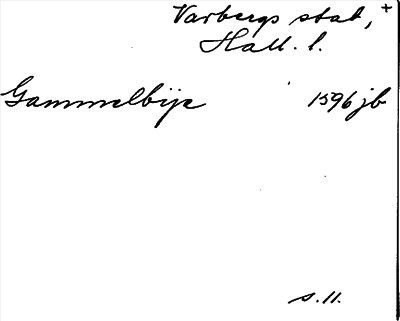 Varbergs stad, +
Hall. l.
Gammelbÿe 1596 jb
s. 11.